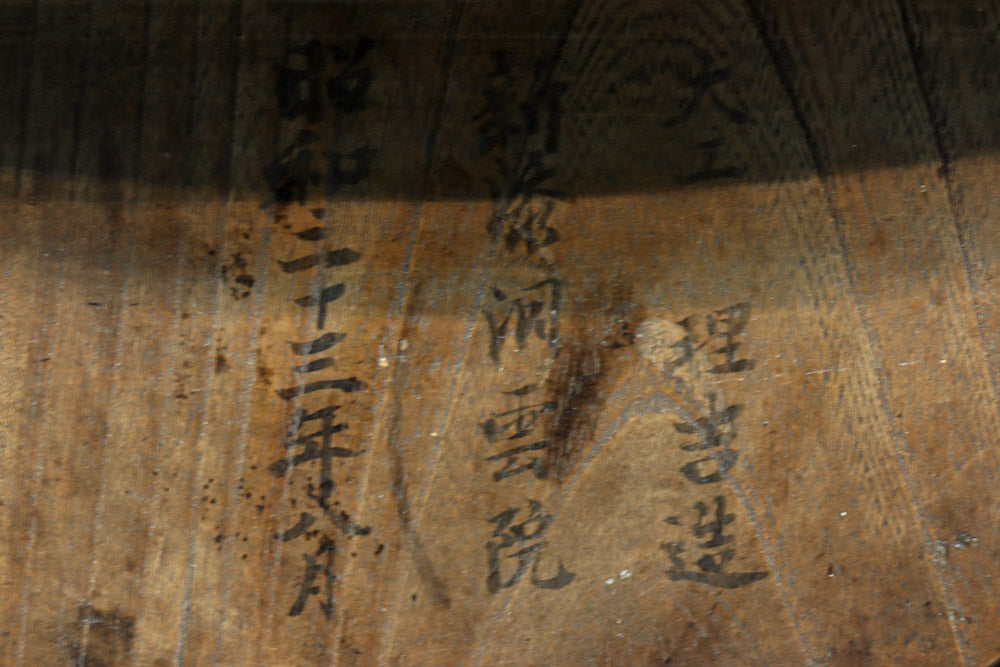 大工 理吉造
新 洞雲院
昭和二十三年 八月